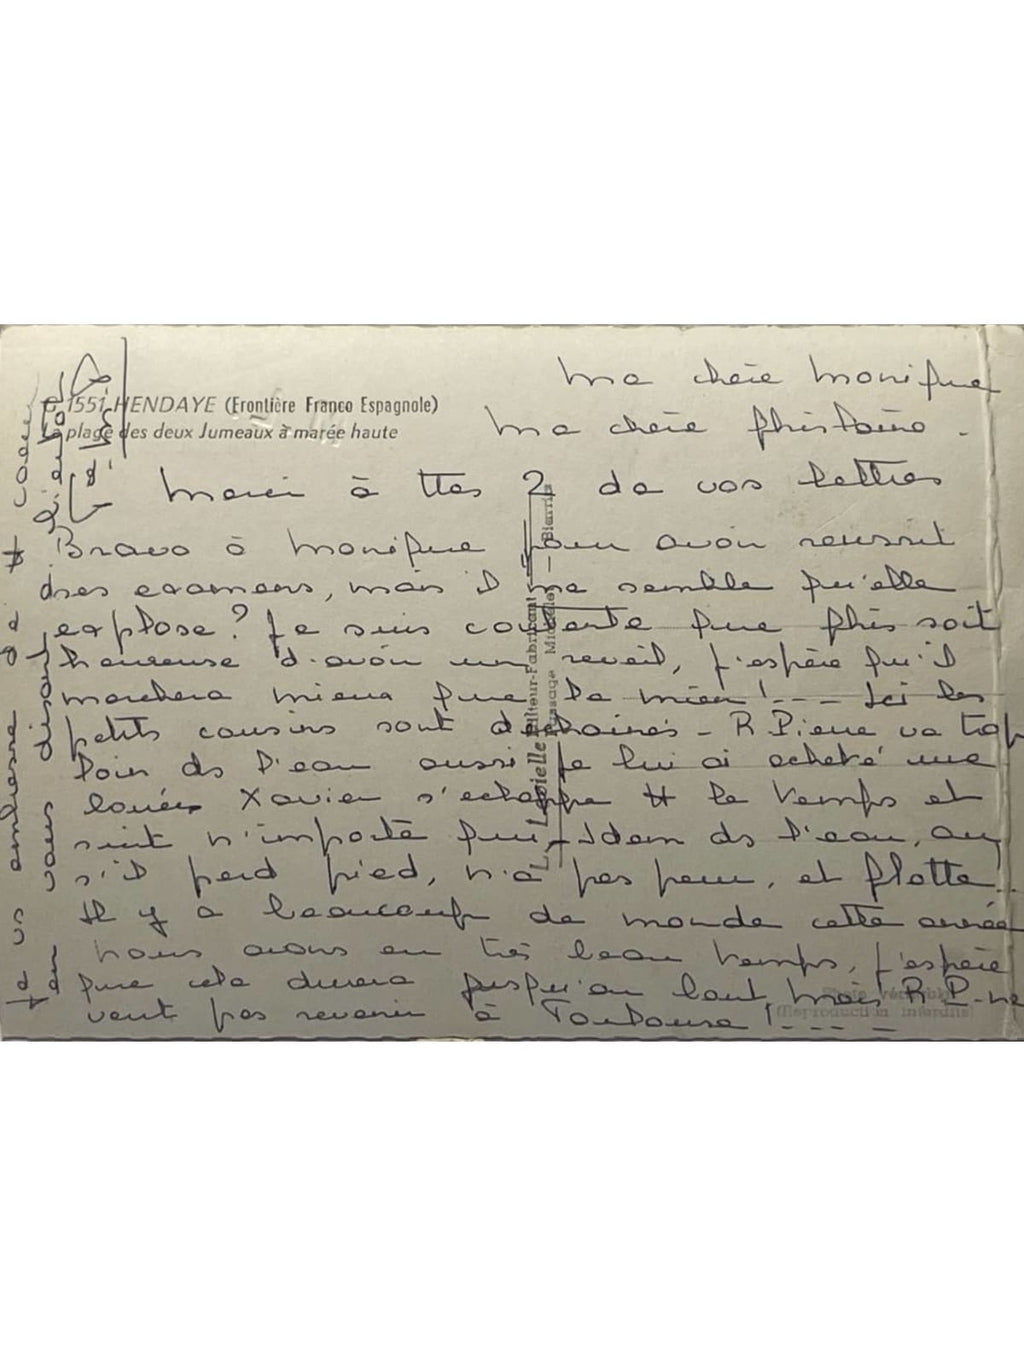 1551 HENDAYE (Frontière Franco Espagnole)
plage des deux Jumeaux à marée haute
Ma chère Monique
Ma chère
Merci à ttes 2 de vos lettres
Bravo à Monique pour avoir reussit
ses examens, mais il me semble qu'elle
explose? Je suis contente que soit
heureuse d'avoir un reveil, j'espère qu'il
marchera mieux que le mien! --- Ici les
petits cousins sont déchainés - R Pierre va trop
loin ds l'eau aussi je lui ai acheté une
bouée, Xavier s'echappe tt le temps et
suit n'importe qui - Idem ds l'eau, ou
s'il perd pied, n'a pas peur, et flotte..
Il y a beaucoup de monde cette année
nous avons eu très beau temps, j'espère
que cela durera jusqu'au bout, mais R P. ne
veut pas revenir à Toulouse! ----
Je vs embrasse de tt coeur
en vous disant
L. Editeur-Fabricant -
Passage - Biarritz
Photo véritable
(Reproduction interdite)